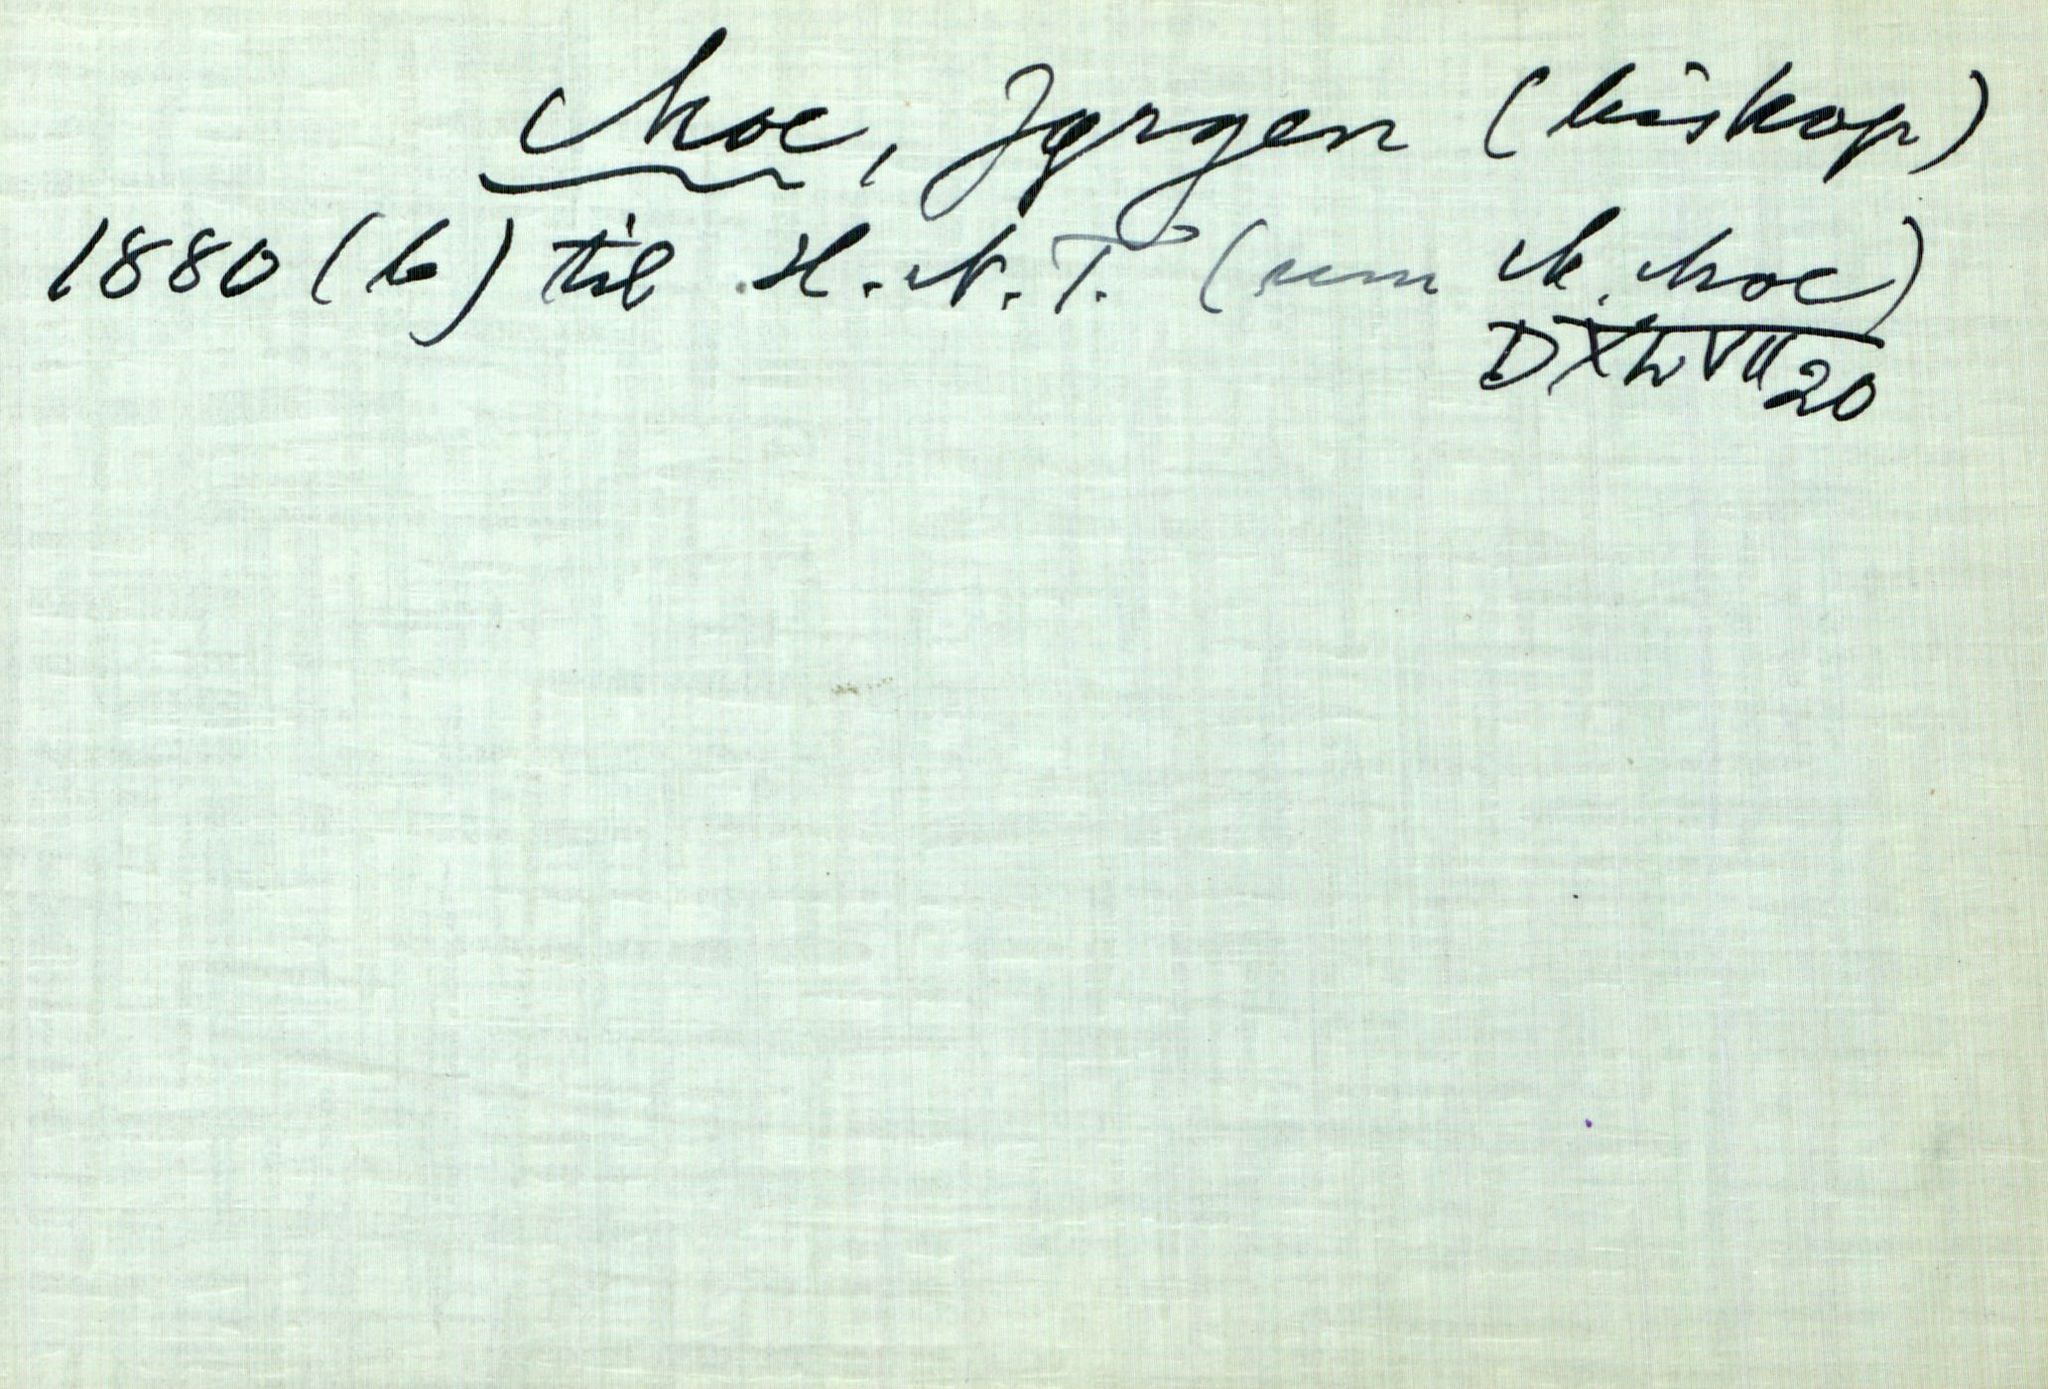 Moe, Jørgen (biskop)
1880 (b) til H. N. T. (um M. Moe)
DXLVIII 20